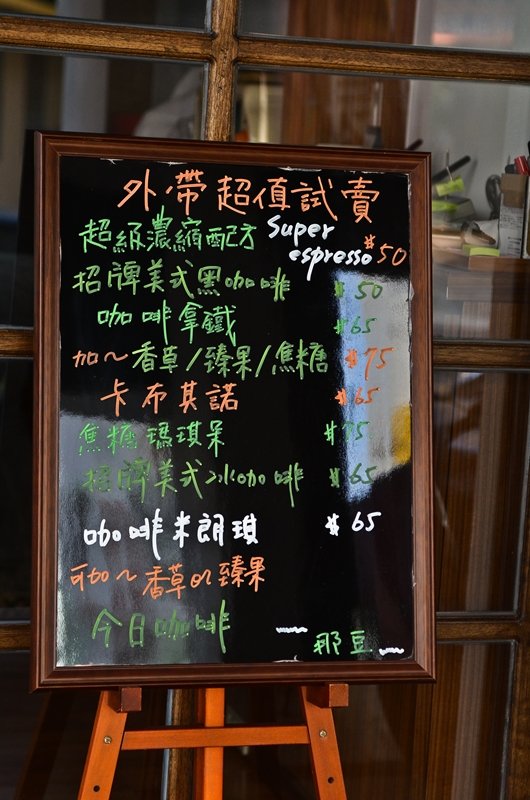 外帶超值試賣
超級濃縮配方 Super espresso $50
招牌美式黑咖啡 $50
咖啡拿鐵 $65
加~香草/臻果/焦糖 $75
卡布其諾 $65
焦糖瑪琪朵 $75
招牌美式冰咖啡 $65
咖啡米朗琪 $65
可加~香草or臻果
今日咖啡
那豆